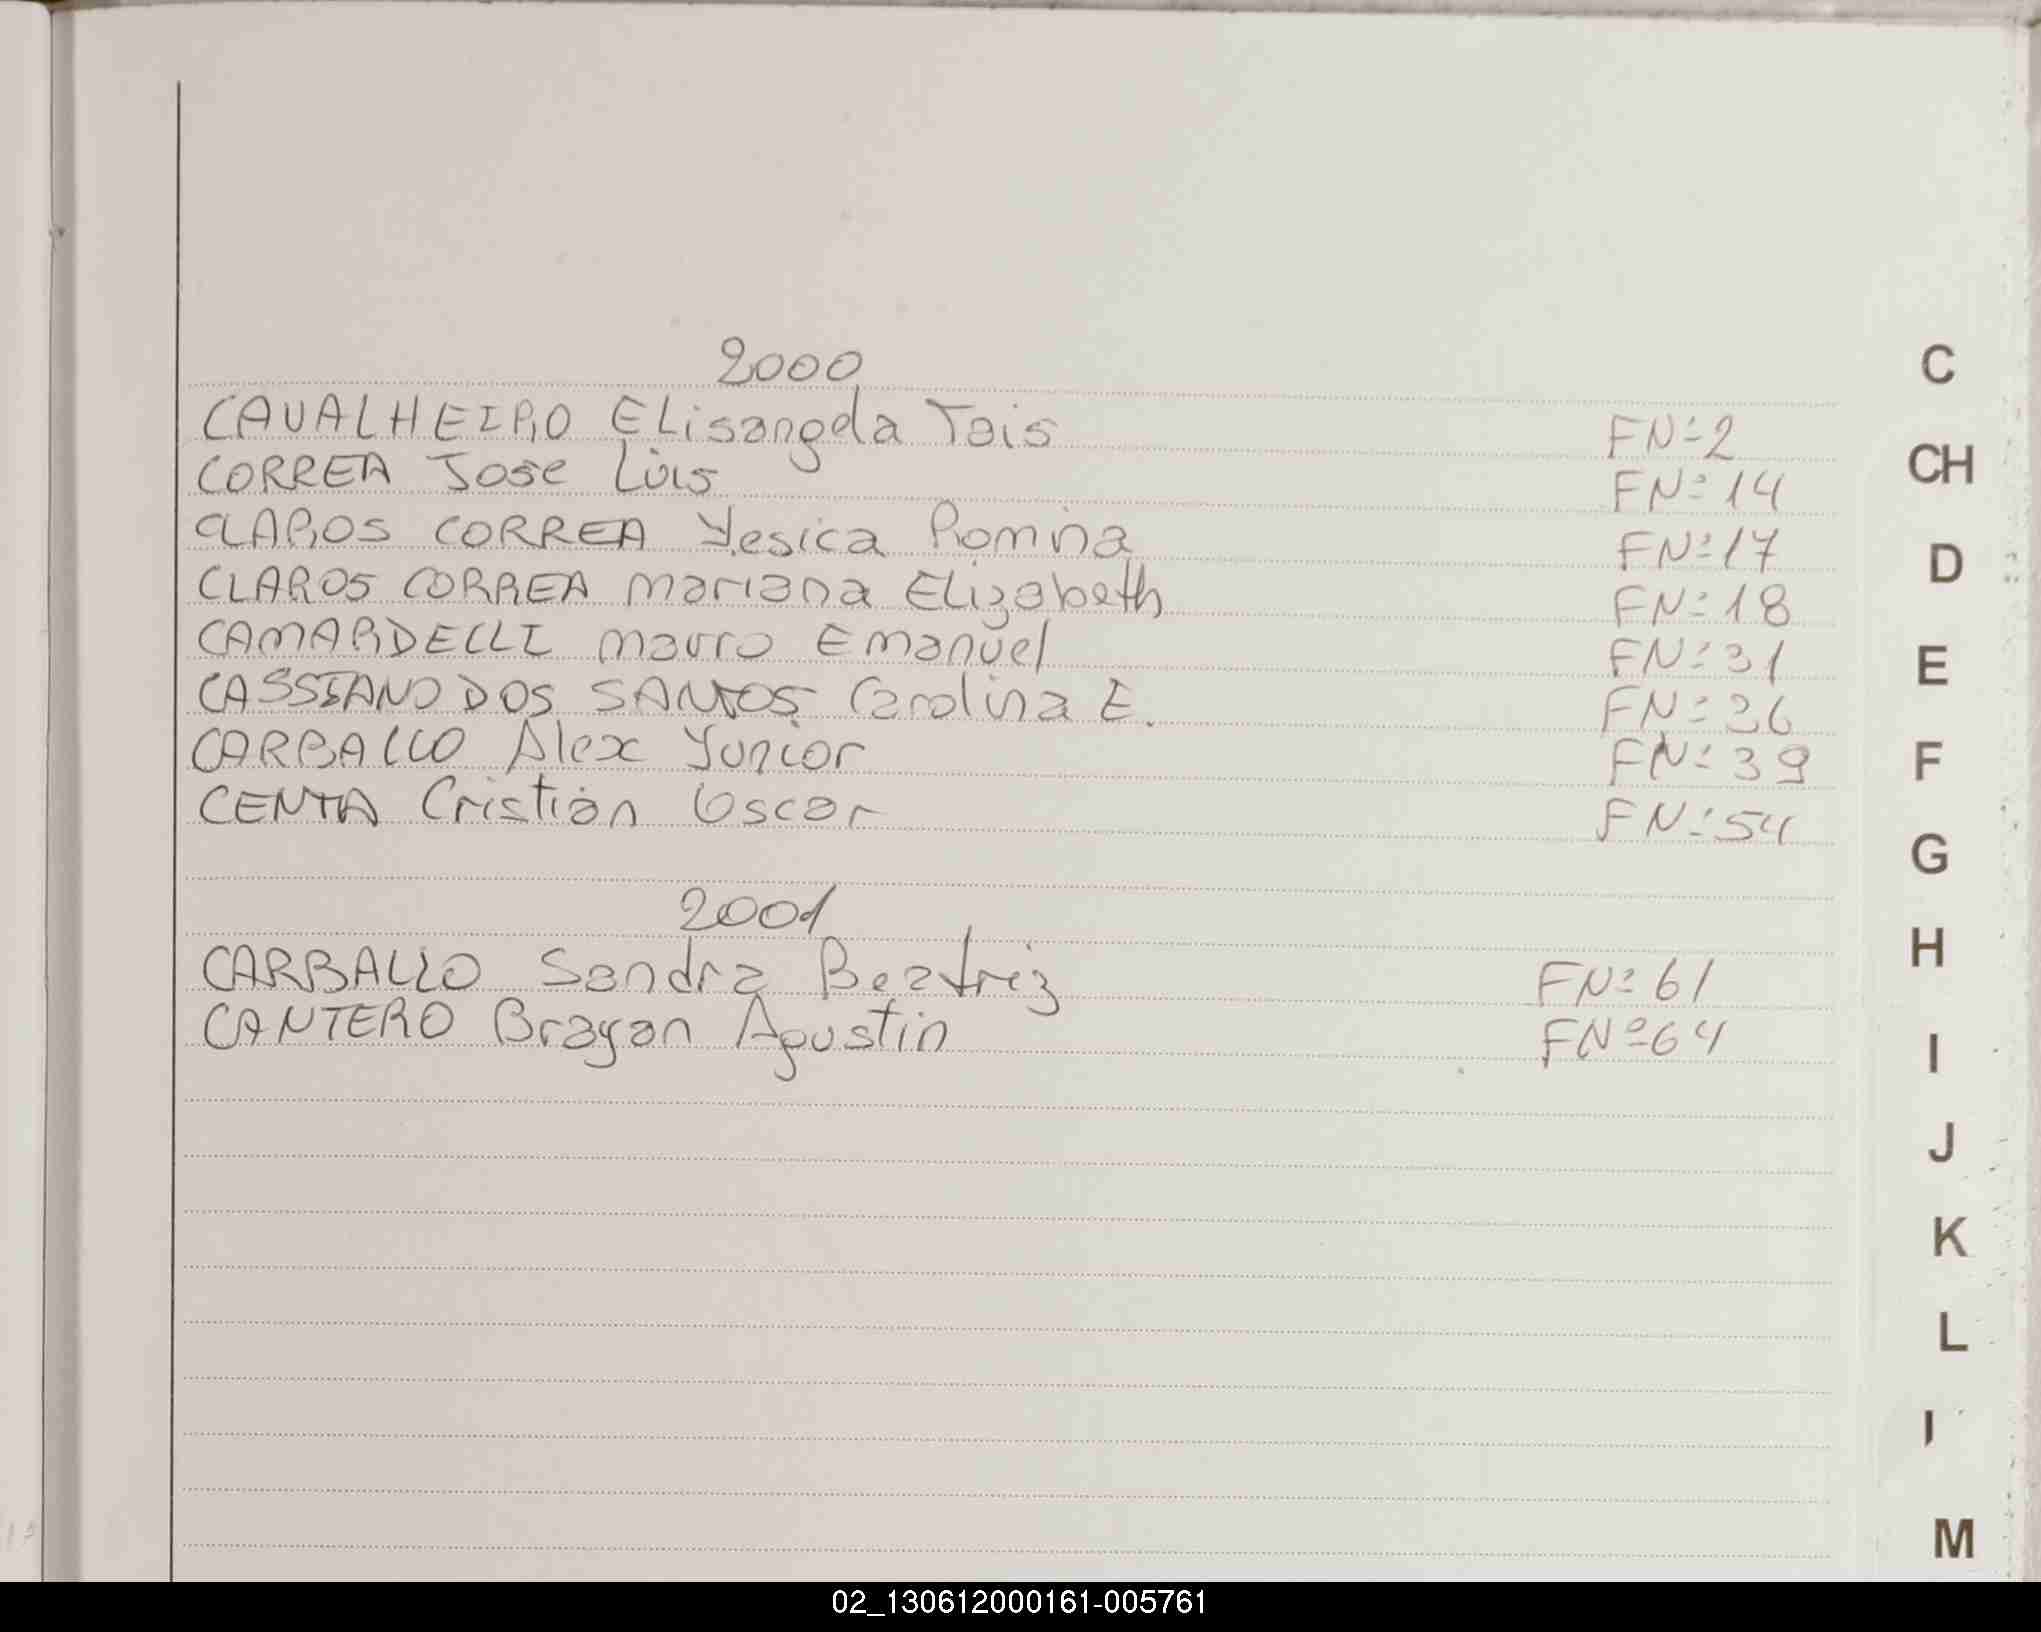 2000
CAVALHEIRO ELisangela Tais FNº2
CORREA Jose Luis FNº14
CLAROS CORREA Yesica Romina FNº17
CLAROS CORREA Mariana Elizabeth FNº18
CAMARDELLI Mauro Emanuel FNº31
CASSIANO DOS SANTOS Carolina E. FNº36
CARBALLO Alex Yunior FNº39
CENTA Cristian Oscar FNº54
2001
CARBALLO Sandra Beatriz FNº61
CANTERO Brayan Agustin FNº64
C
CH
D
E
F
G
H
I
J
K
L
M
02_130612000161-005761